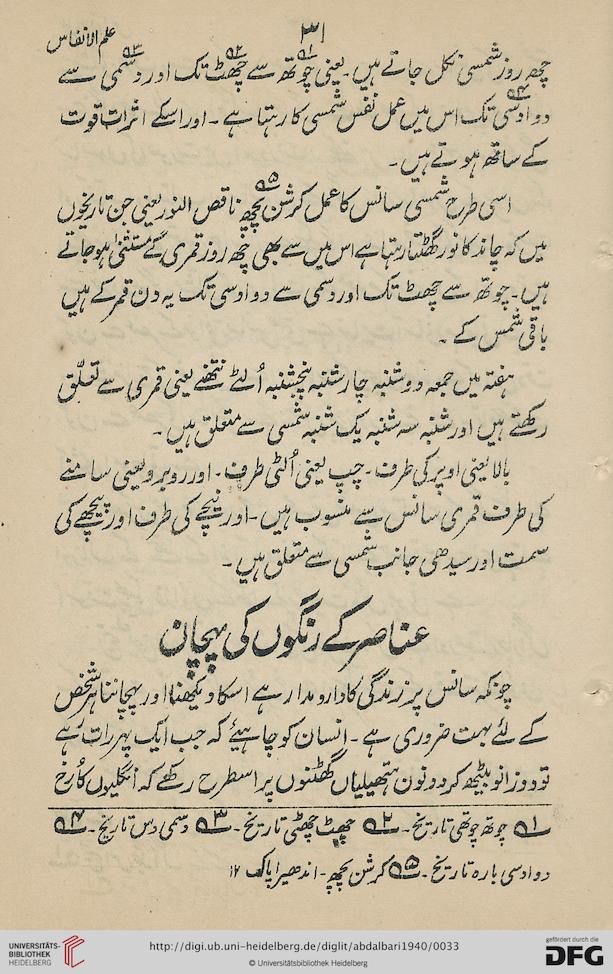 ۳۱
علم الانفاس
چھ روز شمسی نکل جاتے ہیں۔ یعنی چوتھ سے چھٹ تک اور دسمی سے
دوادسی تک اس میں عمل نفس شمسی کا رہتا ہے۔ اور اسکے اثرات قوت
کے ساتھ ہوتے ہیں۔
اسی طرح شمسی سانس کا عمل کرشن پچھ ناقص النور یعنی جن تاریخوں
میں کہ چاند کا نور گھٹتا رہتا ہے اس میں سے بھی چھ روز قمری کے مستثنیٰ ہو جاتے
ہیں۔ چوتھ سے چھٹ تک اور دسمی سے دوادسی تک یہ دن قمر کے ہیں
باقی شمس کے۔
ہفتہ میں جمعہ دوشنبہ چارشنبہ پنجشنبہ اُلٹے نتھنے یعنی قمری سے تعلّق
رکھتے ہیں اور شنبہ سہ شنبہ یک شنبہ شمسی سے متعلق ہیں۔
بالا یعنی اوپر کی طرف۔ چپ یعنی اُلٹی طرف۔ اور روبرو یعنی سامنے
کی طرف قمری سانس سے منسوب ہیں۔ اور نیچے کی طرف اور پیچھے کی
سمت اور سیدھی جانب شمسی سے متعلق ہیں۔
عناصر کے رنگوں کی پہچان
چونکہ سانس پر زندگی کا دار و مدار ہے اسکا دیکھنا اور پہچاننا ہر شخص
کے لئے بہت ضروری ہے۔ انسان کو چاہیئے کہ جب ایک پہر رات رہے
تو دو زانو بیٹھ کر دونوں ہتھیلیاں گھٹنوں پر اسطرح رکھے کہ انگلیوں کا رُخ
۱؎ چوتھ چوتھی تاریخ۔ ۲؎ چھٹ چھٹی تاریخ۔ ۳؎ دسمی دس تاریخ۔ ۴؎
دوادسی بارہ تاریخ۔ ۵؎ کرشن پچھ۔ اندھیرا پاک ۱۲
UNIVERSITÄTS-
BIBLIOTHEK
HEIDELBERG
http://digi.ub.uni-heidelberg.de/diglit/abdalbari1940/0033
© Universitätsbibliothek Heidelberg
gefördert durch die
DFG